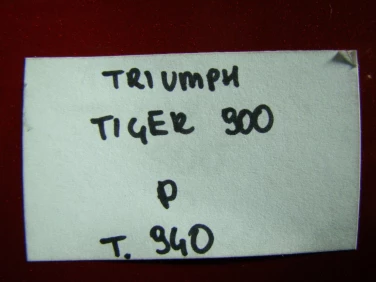 TRIUMPH
TIGER 900
P
T. 940